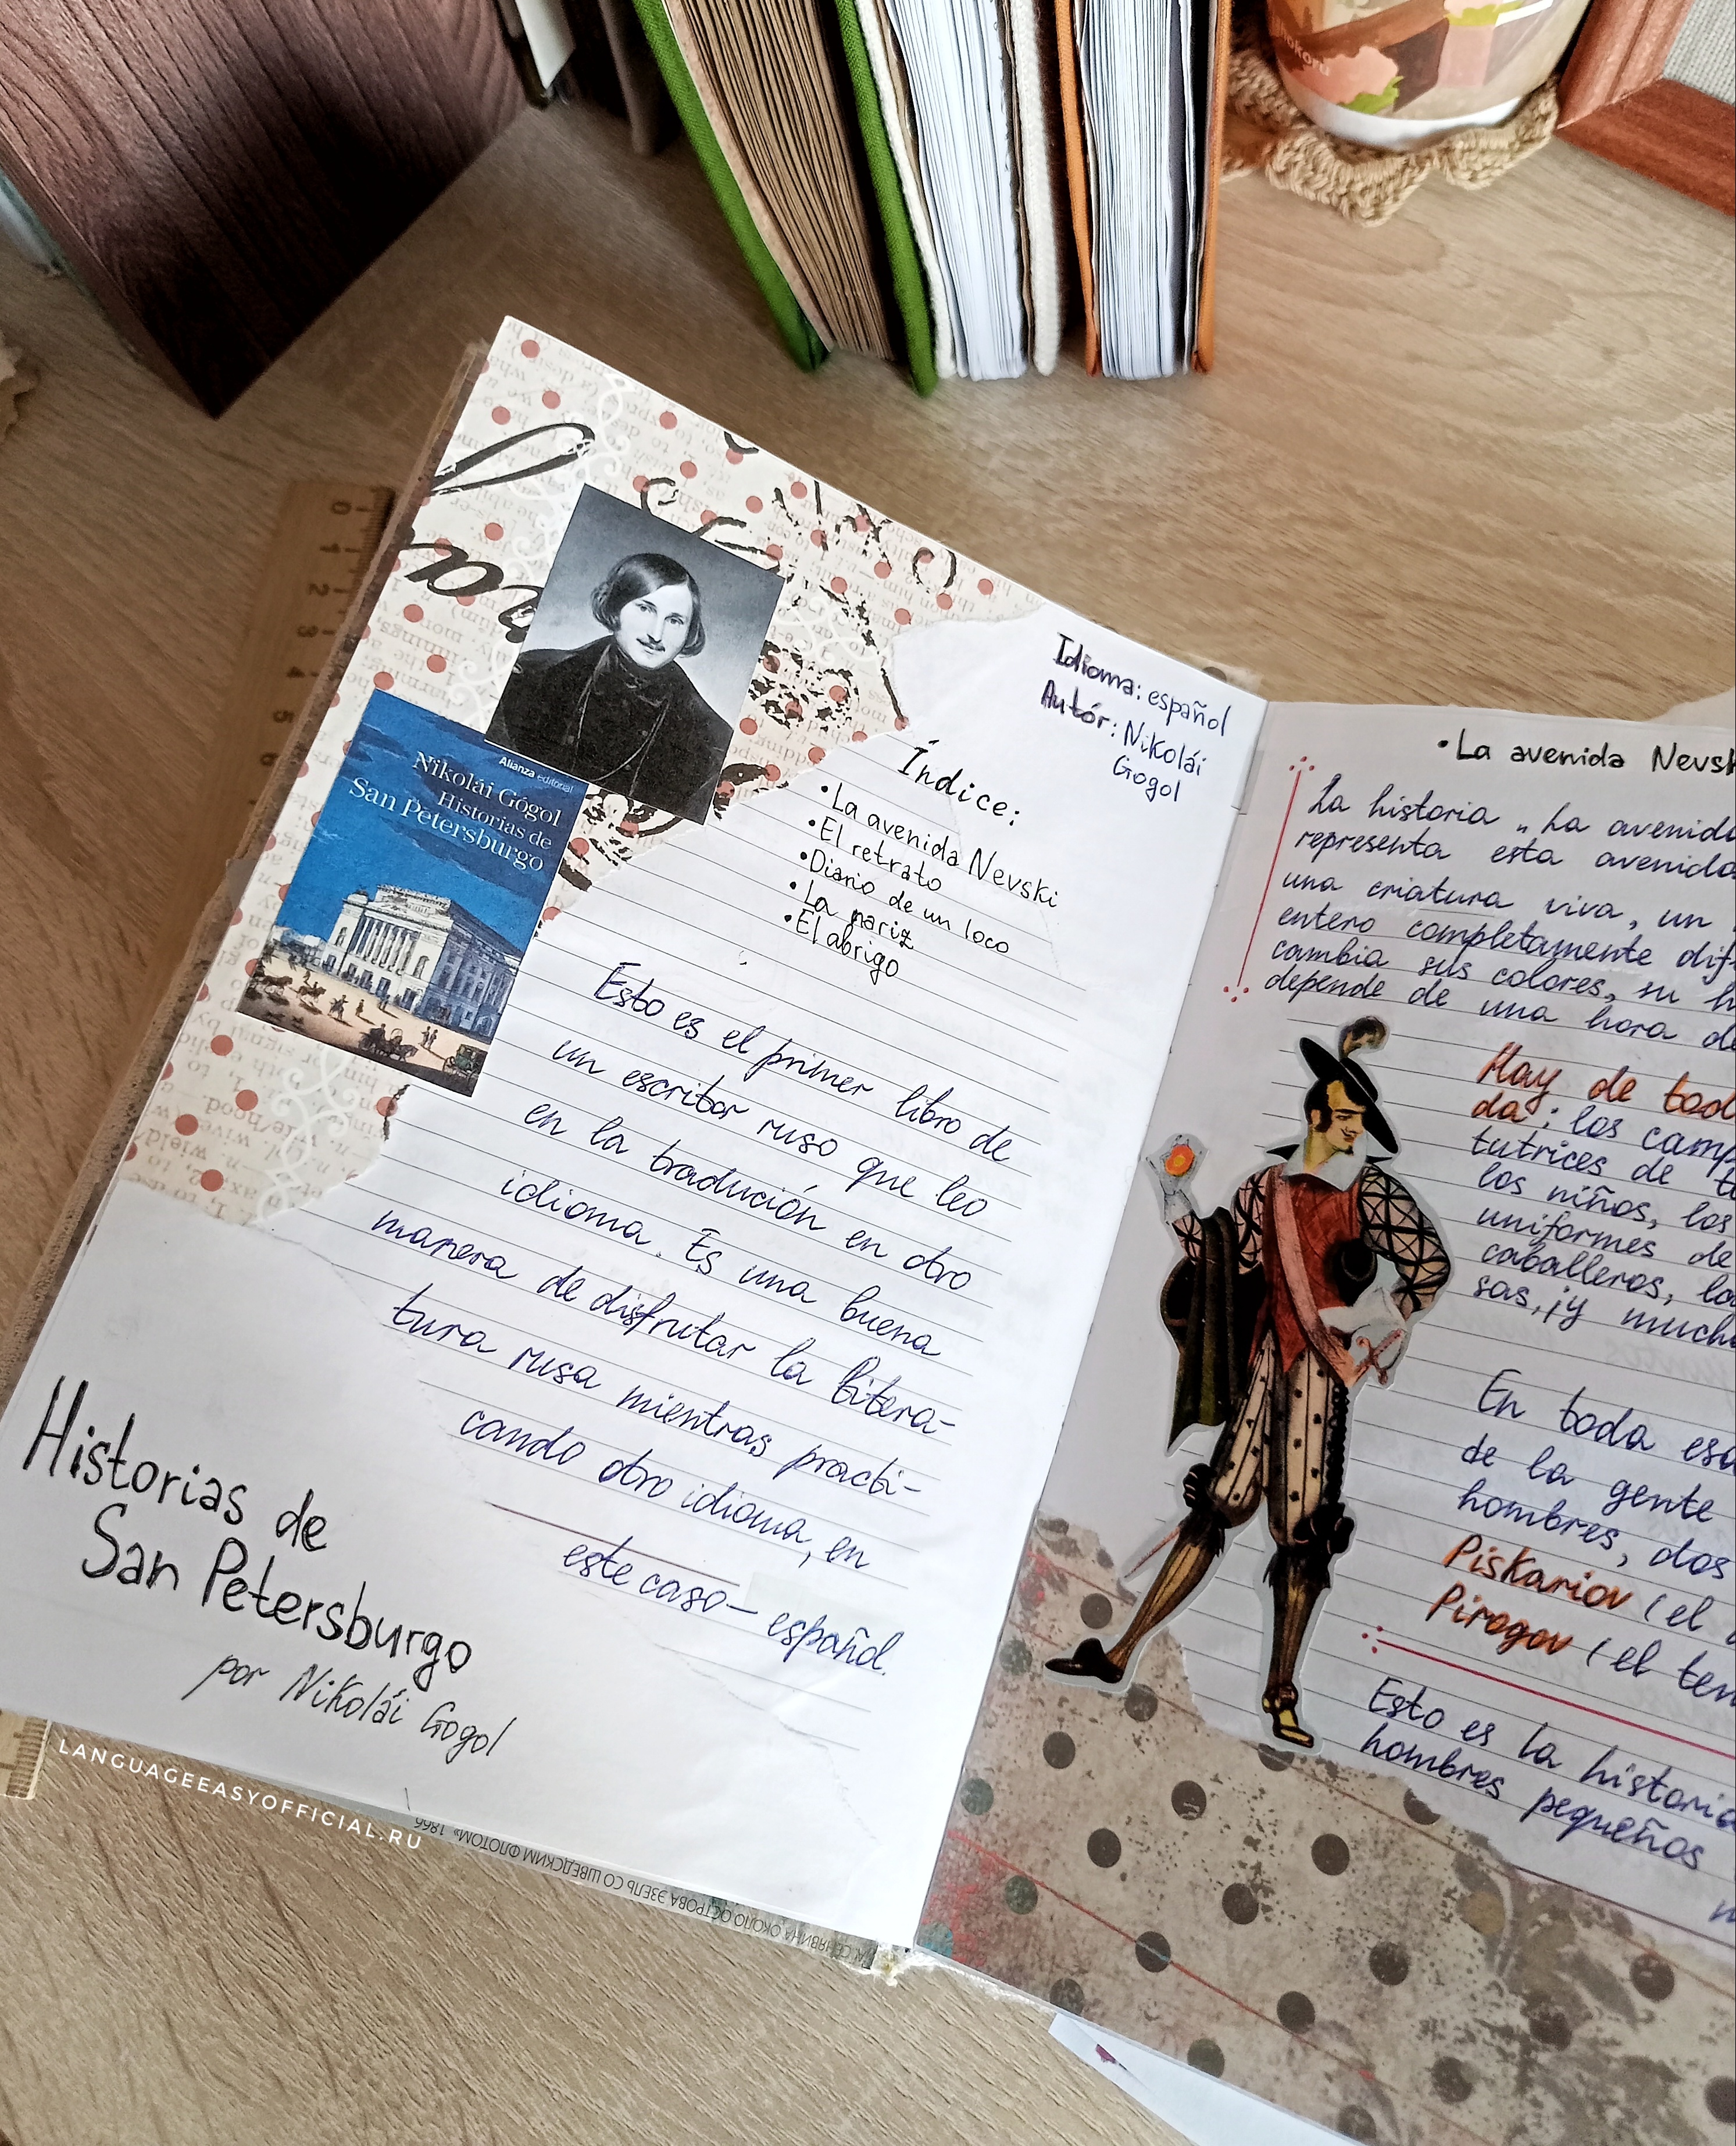 Idioma: español
Autór: Nikolái
Gogol
Alianza editorial
Nikolái Gógol
Historias de
San Petersburgo
Índice:
•La avenida Nevski
•El retrato
•Diario de un loco
•La nariz
•El abrigo
Esto es el primer libro de
un escritor ruso que leo
en la tradución en otro
idioma. Es una buena
manera de disfrutar la litera-
tura rusa mientras practi-
cando otro idioma, en
este caso — español.
Historias de
San Petersburgo
por Nikolái Gogol
LANGUAGEEASYOFFICIAL.RU
СЕНЯВИНА ОКОЛО ОСТРОВА ЭЗЕЛЬ СО ШВЕДСКИМ ФЛОТОМ». 1866
•La avenida Nevsk
La historia „La avenida
representa esta avenida
una criatura viva, un
entero completamente dif
cambia sus colores, su h
depende de una hora de
Hay de tod
da: los camp
tutrices de t
los niños, los
uniformes de
caballeros, la
sas, ¡y much
En toda esa
de la gente
hombres, dos
Piskariov (el
Pirogov (el ten
Esto es la historia
hombres pequeños
0
1
2
3
4
5
6